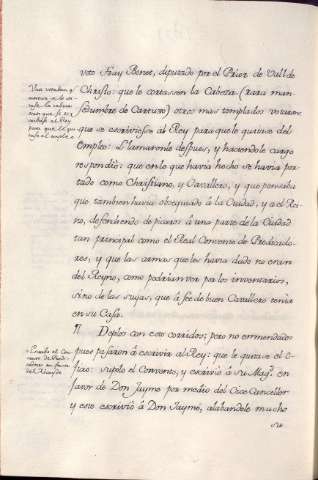 voto Fray Benet, diputado por el Prior de Vall de
Christo: que le cortassen la Cabeza (rara man
sedumbre de Cartuxo) otros mas templados votaron
que se escriviesse al Rey para que le quitase del
Empleo: Llamaronle despues, y haciendole cargo
respondió: que en lo que havia hecho se havia por-
tado como Christiano, y Cavallero, y que pensaba
que tambien havia obsequiado á la Ciudad, y al Rei-
no, defendiendo de picaros á una parte de la Ciudad
tan principal como el Real Convento de Predicado-
res, y que las armas que les havia dado no eran
del Reyno, como podrian ver por los inventarios,
sino de las suyas, que á fée de buen Cavallero tenia
en su Casa.
¶ Deptos con esto corridos; pero no enmendados
pues pasaron á escrivir al Rey: que le quitase el O-
ficio: supolo el Convento, y escrivió á su Magd. en
favor de Don Jayme por medio del Vice Canceller
y este escrivió á Don Jayme, alabandole mucho
su
Uno votaban q
muriera, y le es-
cusa
que se es-
cribiese al Rey
para que le qui-
tase el empleo
Escribe el Con-
vento
favor
del